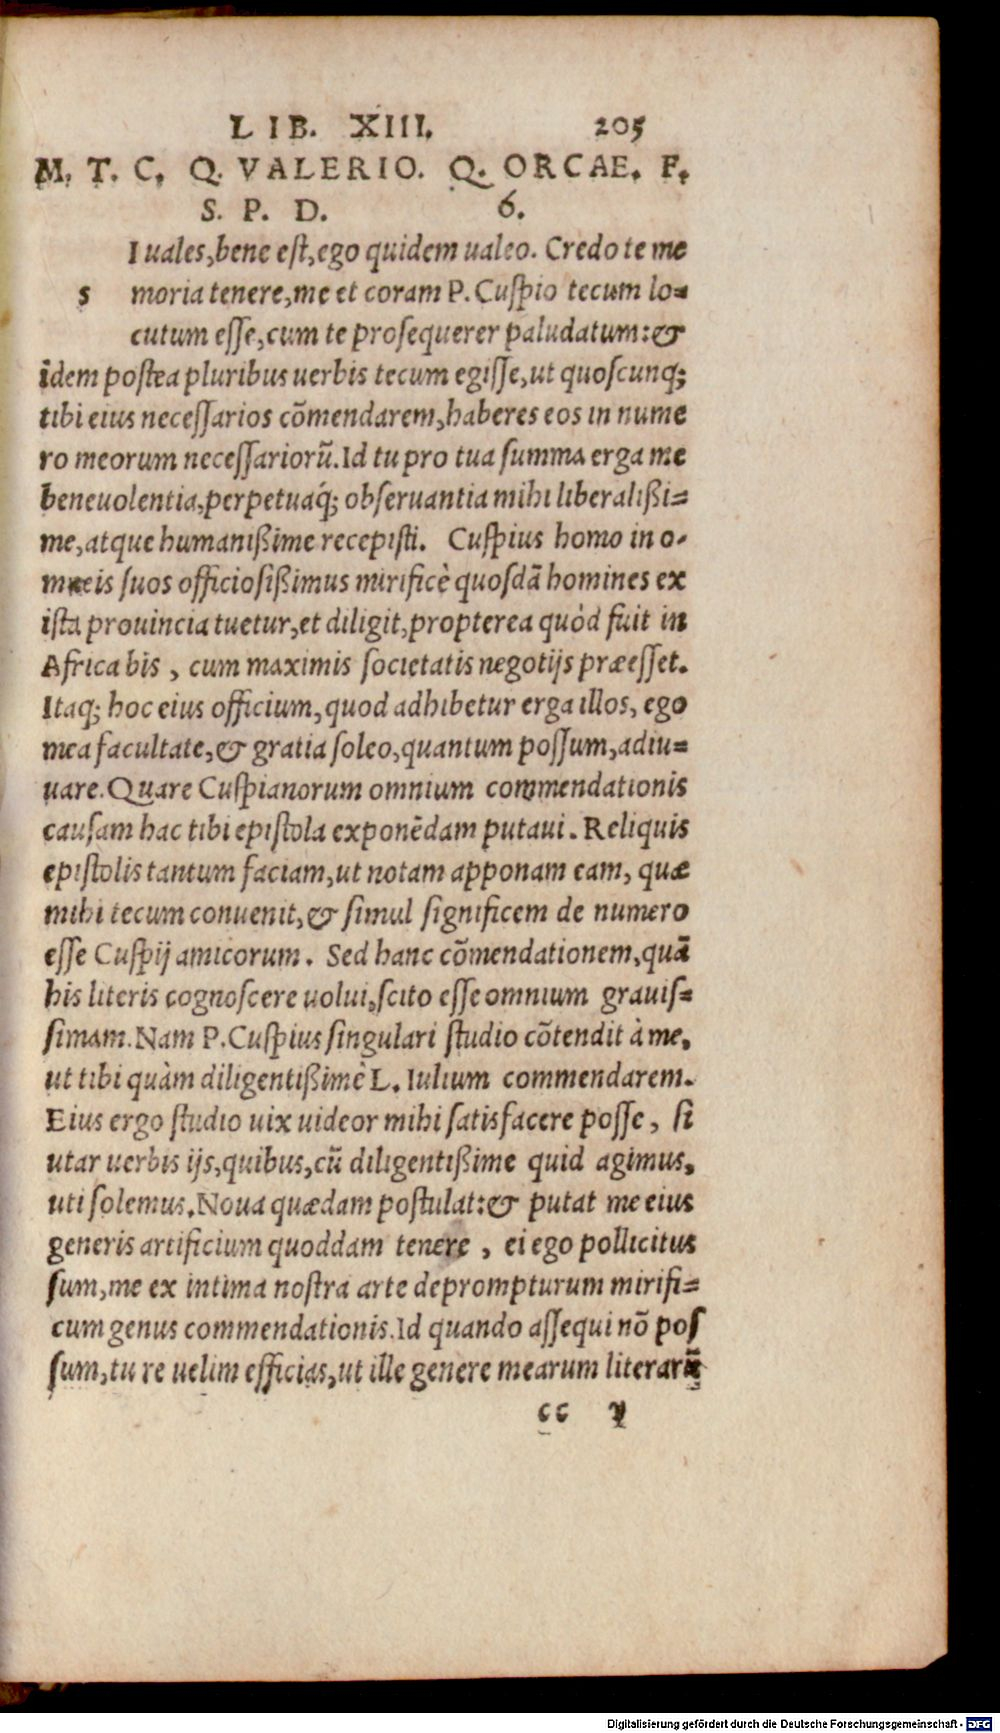 LIB. XIII. 205
M. T. C. Q. VALERIO. Q. ORCAE. F.
S. P. D. 6.
I uales, bene est, ego quidem ualeo. Credo te me
s moria tenere, me et coram P. Cuspio tecum lo=
cutum esse, cum te prosequerer paludatum: &
idem postea pluribus uerbis tecum egisse, ut quoscunq;
tibi eius necessarios cõmendarem, haberes eos in nume
ro meorum necessariorũ. Id tu pro tua summa erga me
beneuolentia, perpetuaq́; obseruantia mihi liberalißi=
me, atque humanißime recepisti. Cuspius homo in o-
mneis suos officiosißimus mirificè quosdã homines ex
ista prouincia tuetur, et diligit, propterea quòd fuit in
Africa bis, cum maximis societatis negotijs præesset.
Itaq; hoc eius officium, quod adhibetur erga illos, ego
mea facultate, & gratia soleo, quantum possum, adiu=
uare. Quare Cuspianorum omnium commendationis
causam hac tibi epistola exponẽdam putaui. Reliquis
epistolis tantum faciam, ut notam apponam eam, quæ
mihi tecum conuenit, & simul significem de numero
esse Cuspij amicorum. Sed hanc cõmendationem, quã
his literis cognoscere uolui, scito esse omnium grauis=
simam. Nam P. Cuspius singulari studio cõtendit à me,
ut tibi quàm diligentißimè L. Iulium commendarem.
Eius ergo studio uix uideor mihi satisfacere posse, si
utar uerbis ijs, quibus, cũ diligentißime quid agimus,
uti solemus. Noua quædam postulat: & putat me eius
generis artificium quoddam tenere, ei ego pollicitus
sum, me ex intima nostra arte deprompturum mirifi=
cum genus commendationis. Id quando assequi nõ pos
sum, tu re uelim efficias, ut ille genere mearum literarũ
cc v
Digitalisierung gefördert durch die Deutsche Forschungsgemeinschaft - DFG